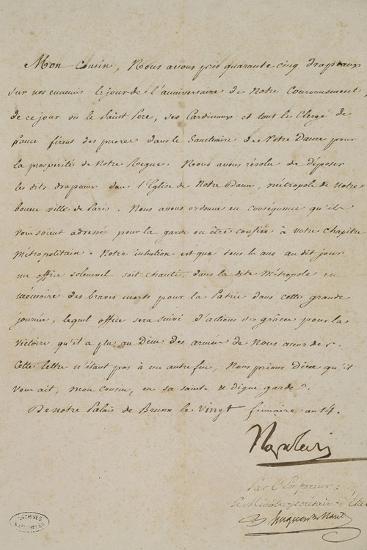 Mon Cousin, Nous avons pris quarante cinq drapeaux
sur nos ennemis le jour de l'anniversaire de Notre Couronnement,
de ce jour où le Saint Père, ses Cardinaux et tout le Clergé de
france firent des prières dans le Sanctuaire de Notre Dame pour
la prospérité de Notre Règne. Nous avons résolu de déposer
les dits drapeaux dans l'Eglise de Notre Dame, métropole de Notre
bonne ville de Paris. Nous avons ordonné en conséquence qu'ils
vous soient adressés pour la garde en être confiée à votre chapitre
métropolitain. Notre intention est que tous les ans au dit jour
un office solemnel soit chanté dans la dite Métropole en
mémoire des braves morts pour la Patrie dans cette grande
journée, lequel office sera suivi d'actions de grâces pour la
victoire qu'il a plu au Dieu des armées de Nous accorder.
Cette lettre n'étant pas à une autre fin, Nous prions Dieu qu'il
vous ait, mon cousin, en sa sainte et digne garde.
De notre Palais de Brunn le vingt frimaire an 14.
Napoleon
Par l'Empereur
Le Ministre Secrétaire d'Etat
Hugues B. Maret